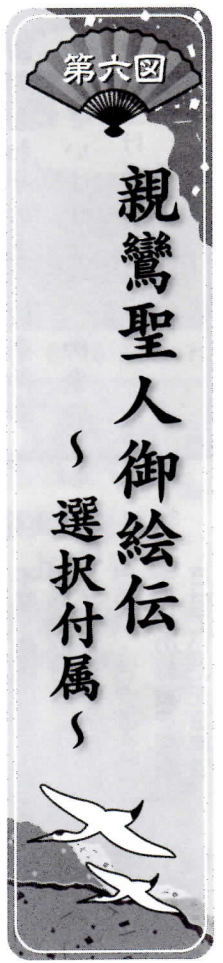 第六図
親鸞聖人御絵伝
～選択付属～